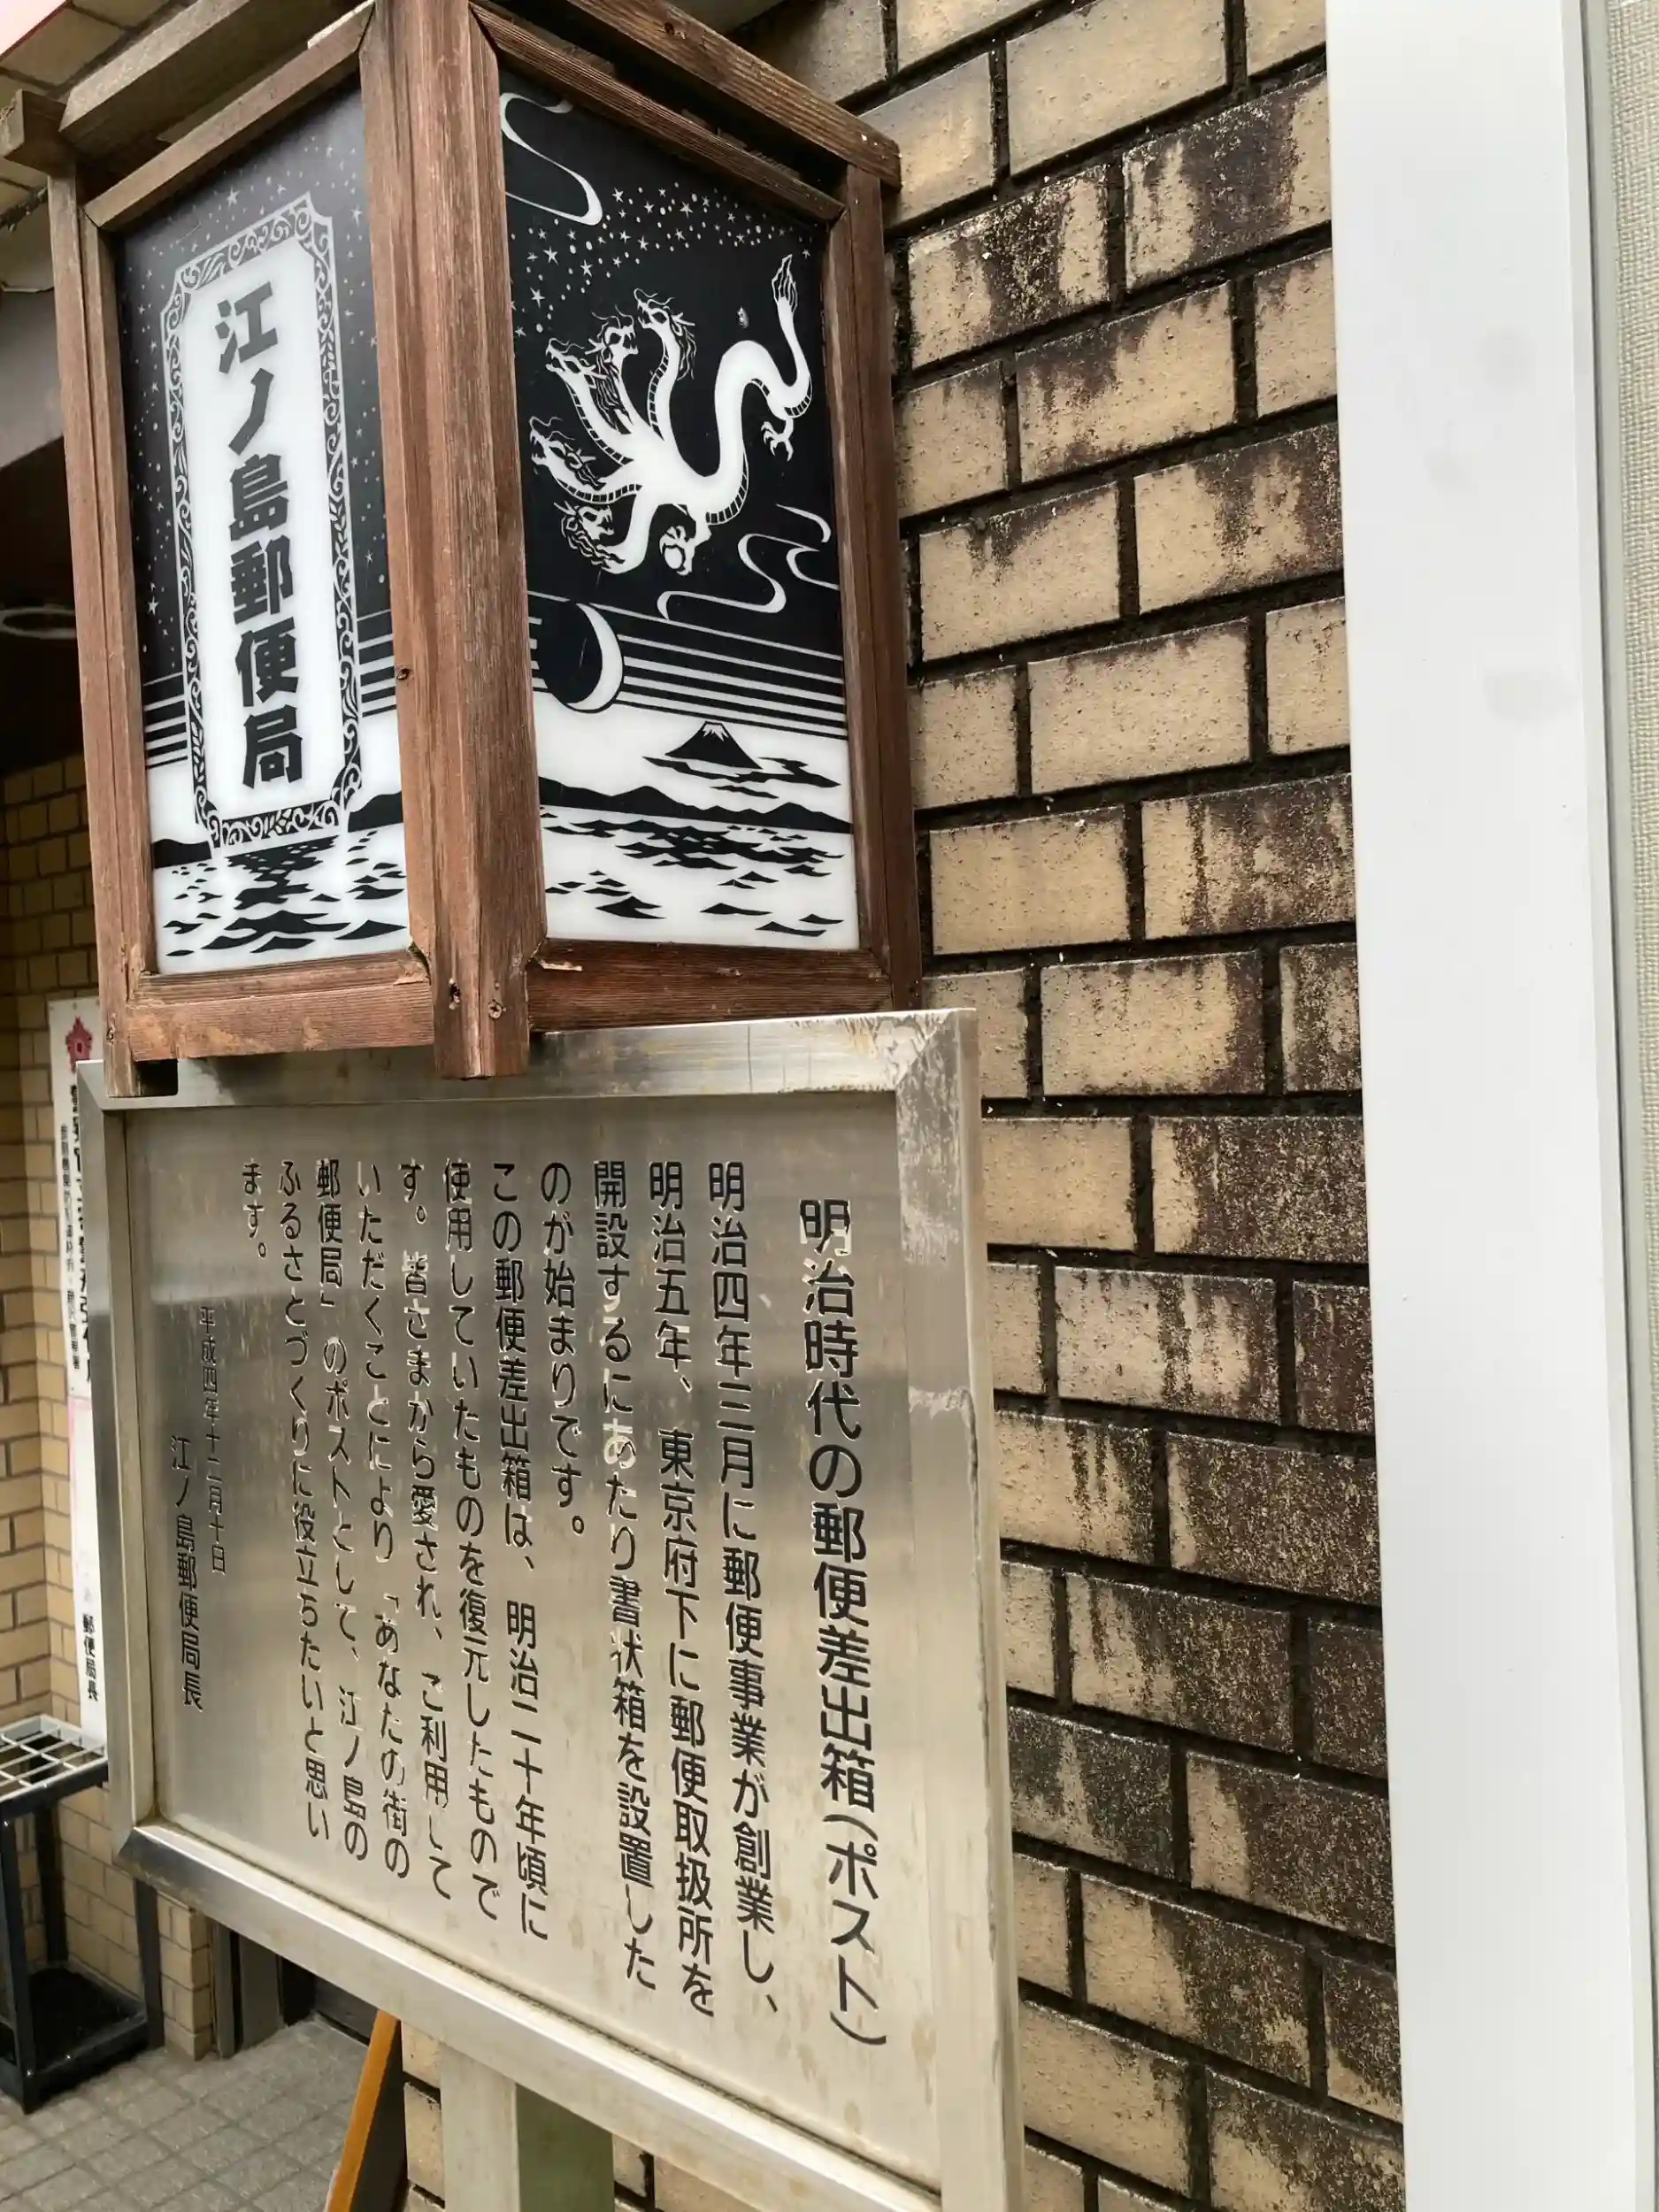 江ノ島郵便局
明治時代の郵便差出箱(ポスト)
明治四年三月に郵便事業が創業し、
明治五年、東京府下に郵便取扱所を
開設するにあたり書状箱を設置した
のが始まりです。
この郵便差出箱は、明治二十年頃に
使用していたものを復元したもので
す。皆さまから愛され、ご利用して
いただくことにより「あなたの街の
郵便局」のポストとして、江ノ島の
ふるさとづくりに役立ちたいと思い
ます。
平成四年十二月十日
江ノ島郵便局長
郵便局長